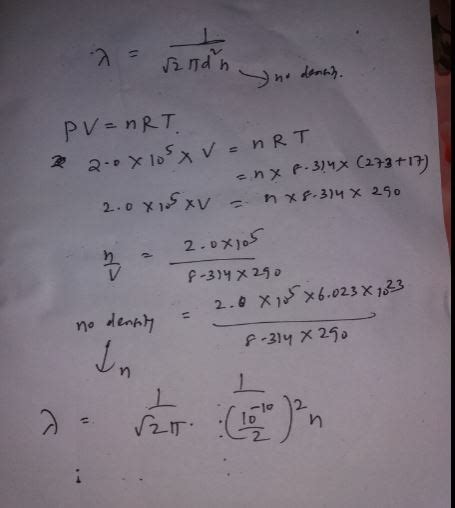 λ = 1/√2 πd²n → no density.
PV = nRT.
2.0 × 10⁵ × V = nRT
= n × 8.314 × (273+17)
2.0 × 10⁵ × V = n × 8.314 × 290
n/V = 2.0×10⁵/8.314 × 290
no density = 2.0 × 10⁵ × 6.023 × 10²³/8.314 × 290
↓ n
λ = 1/√2π · 1/(10⁻¹⁰/2)² n